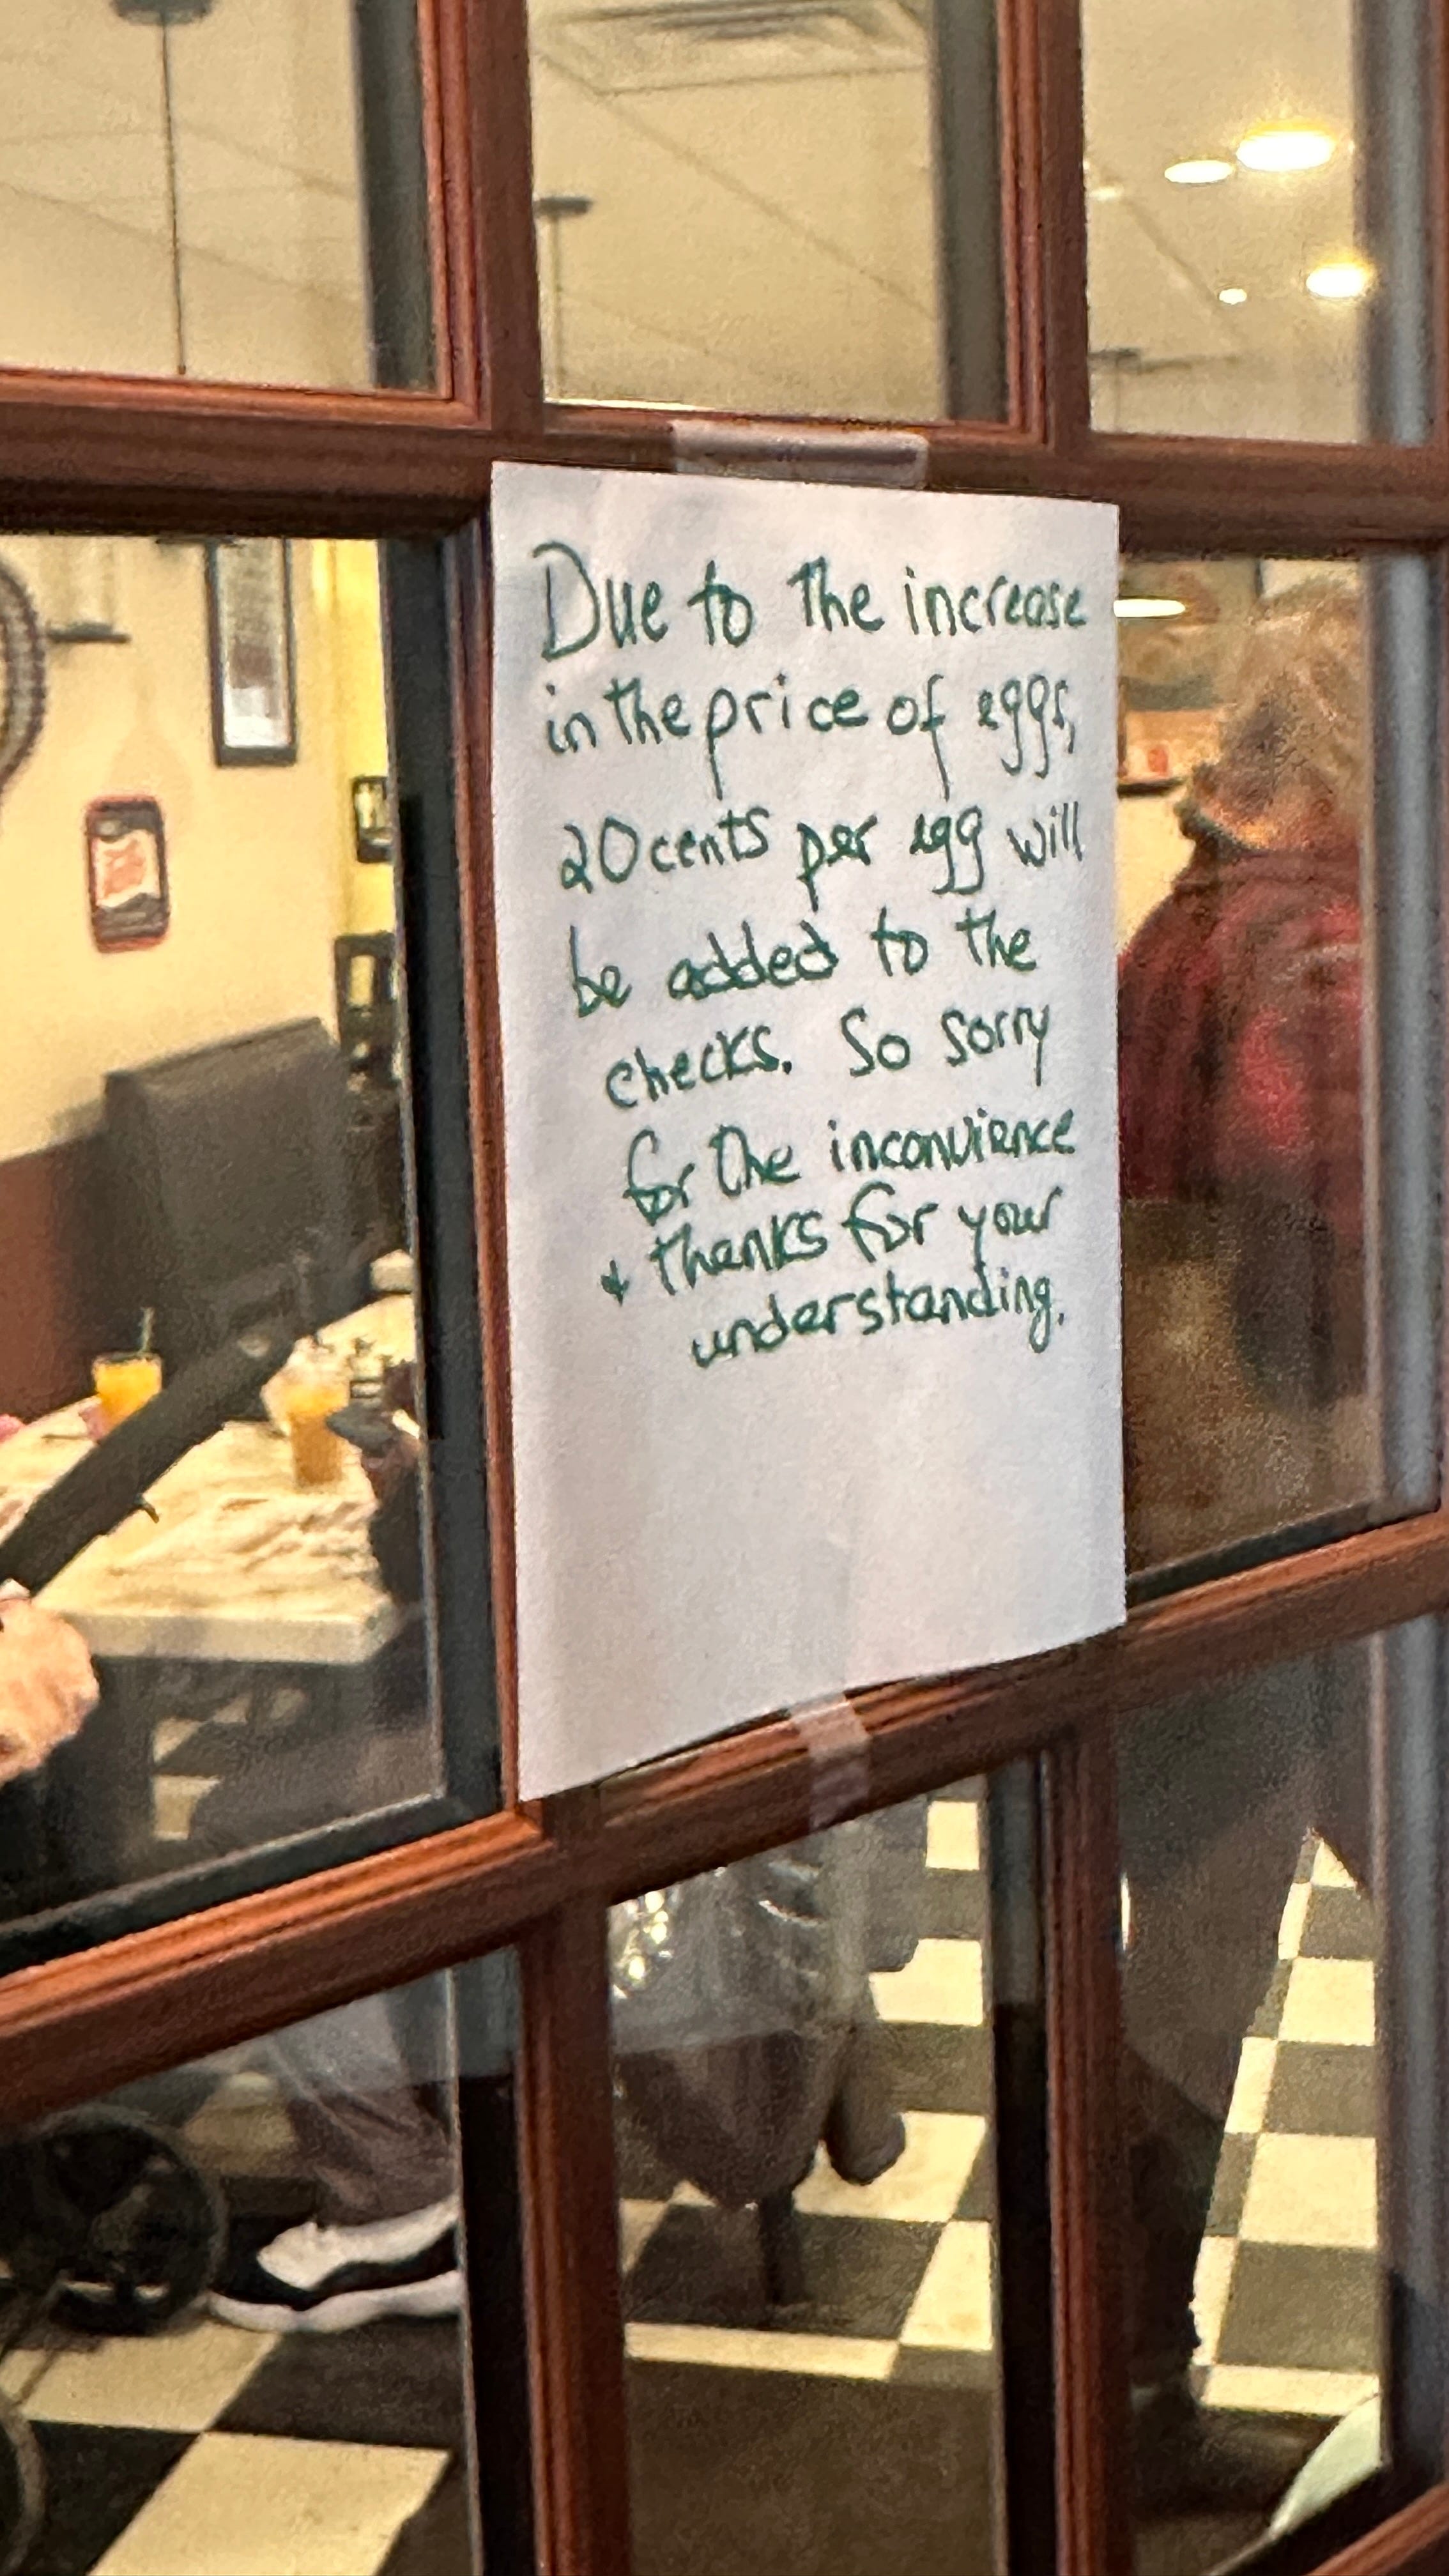 Due to the increase
in the price of eggs,
20 cents per egg will
be added to the
checks. So sorry
for the inconvience
& thanks for your
understanding.